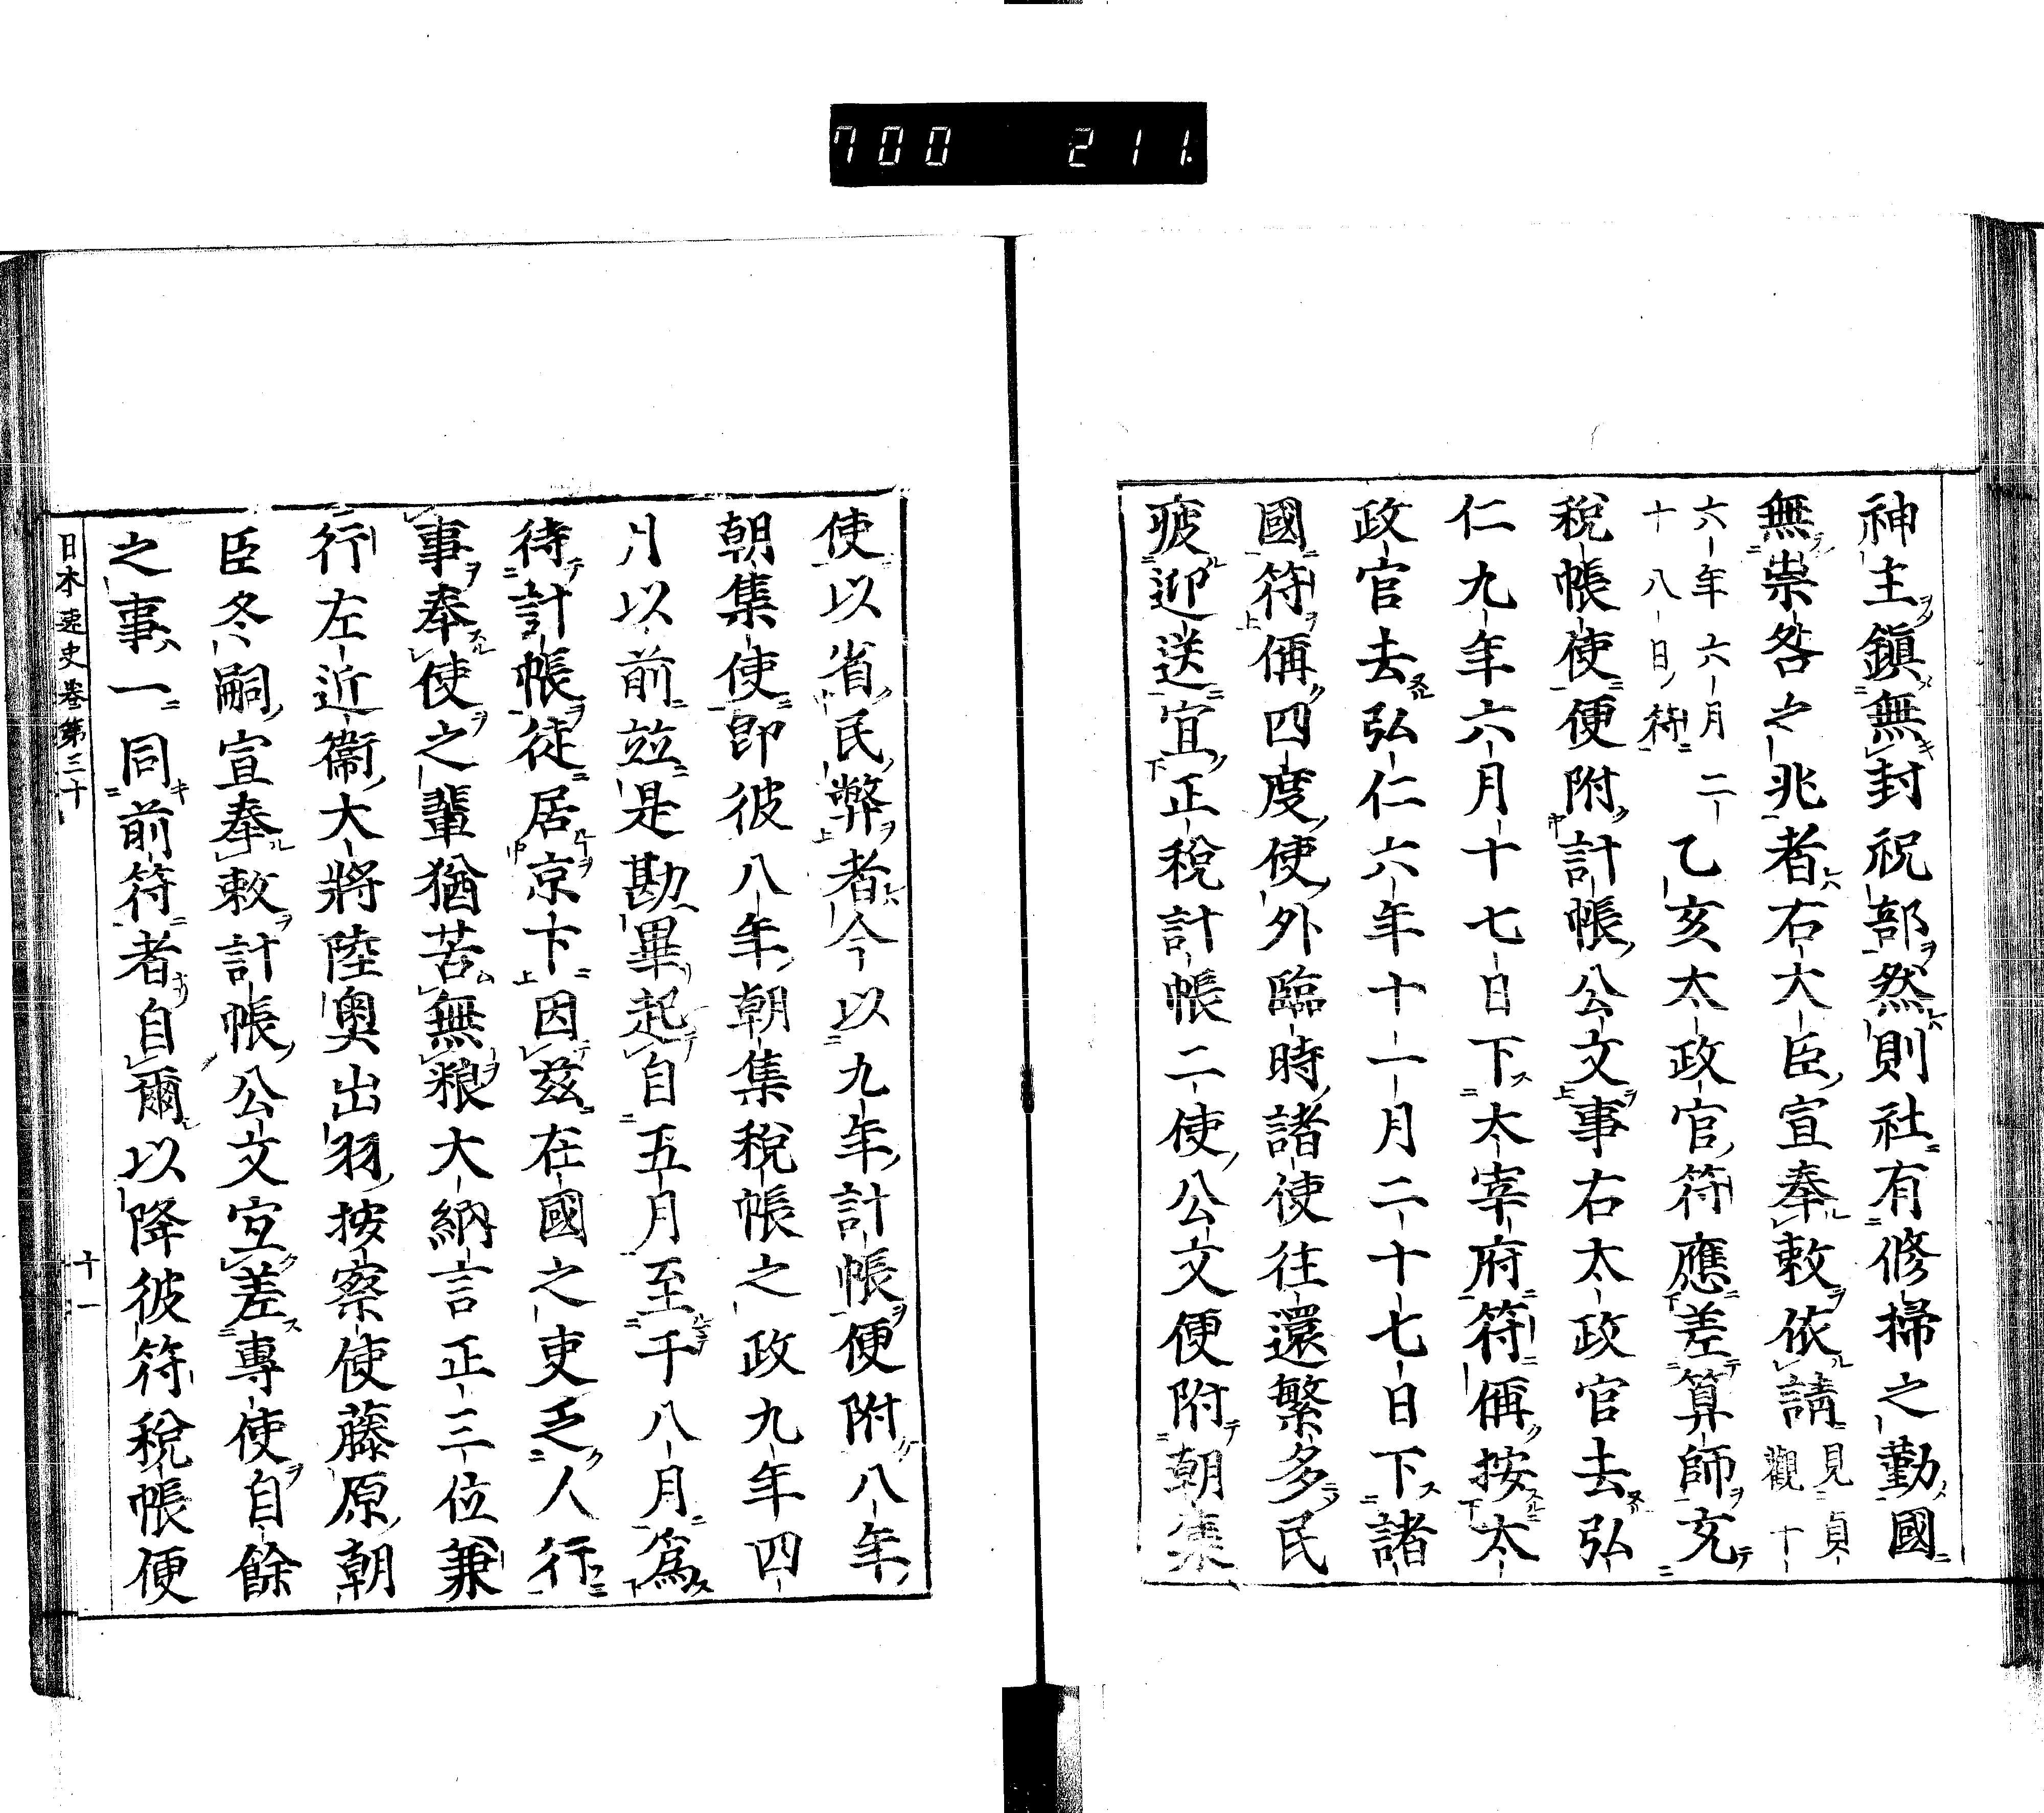 700 211.
神主鎭無封祝部然則社有修掃之勤國
無祟咎之兆者右大臣宣奉敕依請見貞觀十
六年六月二十八日符乙亥太政官符應差算師充
稅帳使便附計帳公文事右太政官去弘
仁九年六月十七日下太宰府符偁按太
政官去弘仁六年十一月二十七日下諸
國符偁四度使外臨時諸使往還繁多民
疲迎送宜正稅計帳二使公文便附朝集
使以省民弊者今以九年計帳便附八年
朝集使卽彼八年朝集稅帳之政九年四
月以前竝是勘畢起自五月至千八月爲
待計帳徒居京下因茲在國之吏乏人行
事奉使之輩猶苦無粮大納言正三位兼
行左近衞大將陸奧出羽按察使藤原朝
臣冬嗣宣奉敕計帳公文宜差專使自餘
之事一同前符者自爾以降彼符稅帳便
日本逸史卷第三十
十一